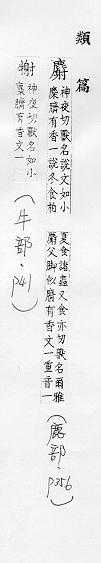 類篇
麝神夜切獸名說文如小麋臍有香一說冬食柏夏食諸蟲又食亦切獸名爾雅麝父脚似麇有香文一重音一
(鹿部·p356)
㓔神夜切獸名如小麋臍有香文一
(牛部·p41)